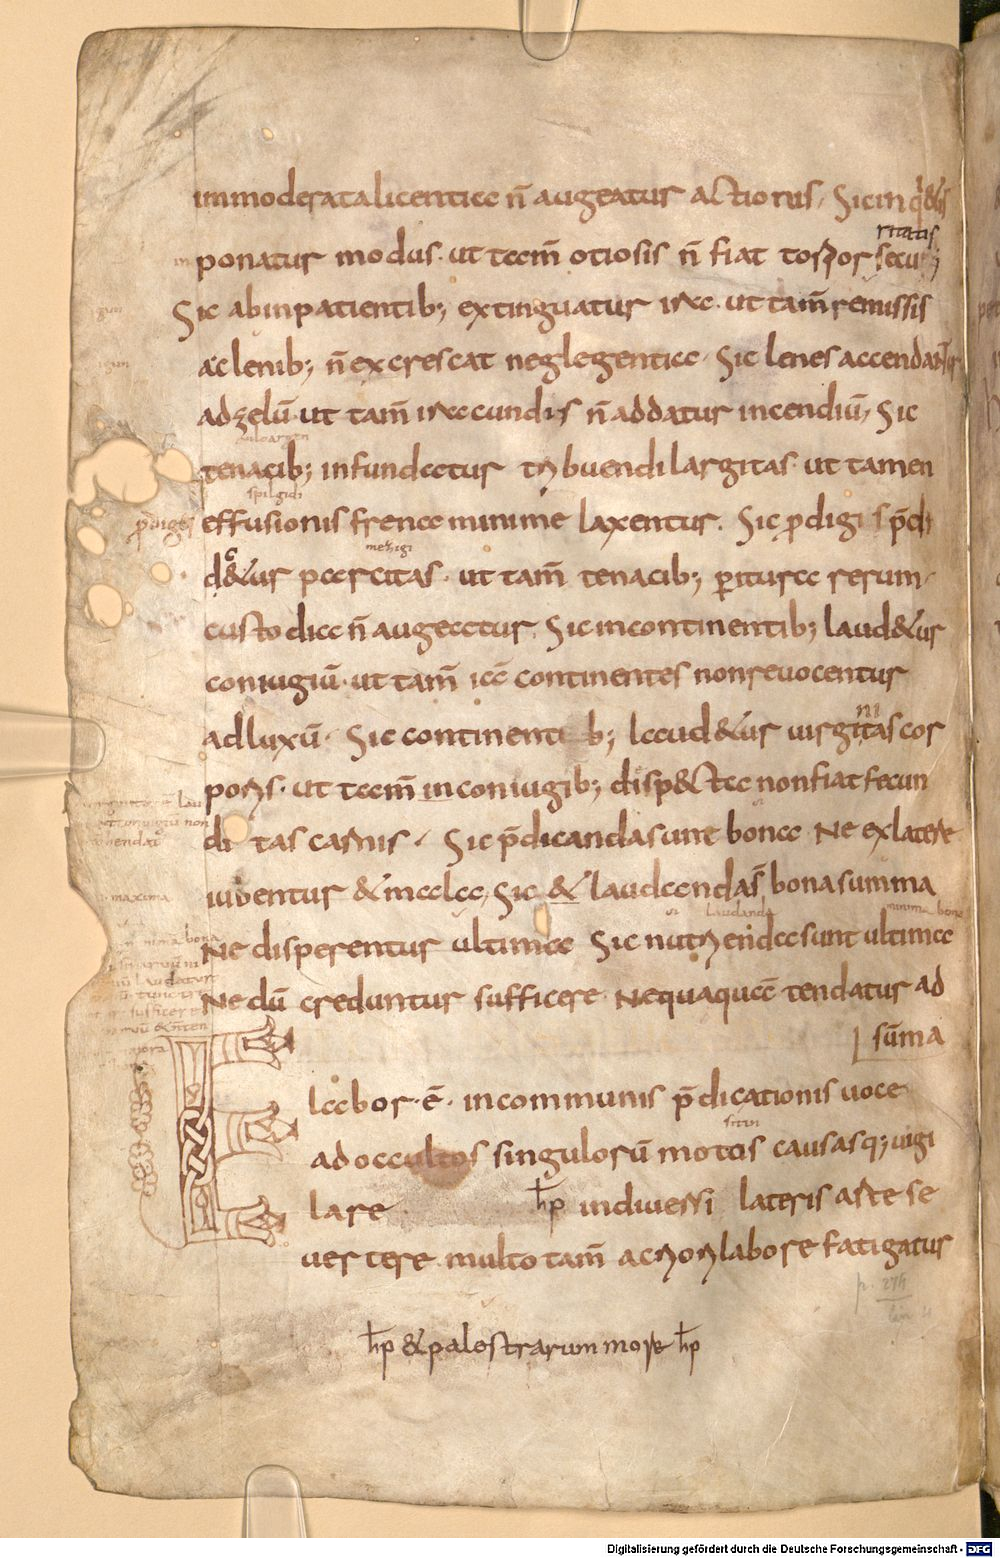 immoderata licentia n̄ augeatur actionis. Sic in q̇&is
ritatis
ponatur modus. ut tam̄ otiosis n̄ fiat torpor secu
Sic ab inpatientib; extinguatur ira. ut tam̄ remissis
ac lenib; n̄ excrescat neglegentia. Sic lenes accendantur
ad zelū. ut tam̄ iracundis n̄ addatur incendiū, Sic
tenacib; infundatur tribuendi largitas. ut tamen
spilgidi
effusionis frena minime laxentur. Sic ꝓdigis p̄di
metzigi
c&ur parcitas. ut tam̄ tenacib; periturae rerum
custodia n̄ augeatur. Sic incontinentib; laud&ur
coniugiū. ut tam̄ iā continentes non reuocentur
ni
ad luxū. Sic continentib; laud&ur uirgitas cor
poris. ut tam̄ in coniugib; disp&cta non fiat fecun
ditas carnis. Sic p̄dicanda sunt bona Ne ex latere
iubentur & mala, Sic & laudanda s̄ bona summa
ut laudanda minima bona
Ne disperentur ultima Sic nutrienda sunt ultima
Ne dū creduntur sufficere. Nequaquā tendatur ad
sūma
maxima
Labor. ē. in communis p̄dicationis uoce
sitin
ad occultos singulorū motus causasq; uigi
lare hp in diuersi lateris arte se
uertere. multo tam̄ acriori labore fatigatur
hp & palestrarum more hp
p. 274
lin
Digitalisierung gefördert durch die Deutsche Forschungsgemeinschaft - DFG